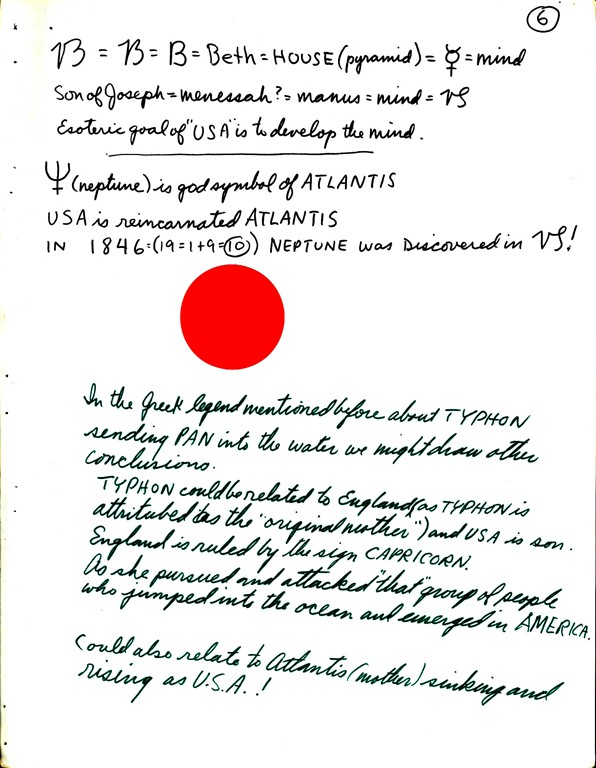 6
♑ = ♑ = B = Beth = HOUSE (pyramid) = ☿ = mind
Son of Joseph = menessah? = manus = mind = ♑
Esoteric goal of "USA" is to develop the mind.
♆ (neptune) is god symbol of ATLANTIS
USA is reincarnated ATLANTIS
IN 1846=(19=1+9=10) NEPTUNE was DISCOVERED in ♑!
In the Greek legend mentioned before about TYPHON
sending PAN into the water we might draw other
conclusions.
TYPHON could be related to England (as TYPHON is
attritubed as the "original mother") and USA is son.
England is ruled by the sign CAPRICORN.
As she pursued and attacked "that" group of people
who jumped into the ocean and emerged in AMERICA.
Could also relate to Atlantis (mother) sinking and
rising as U.S.A.!